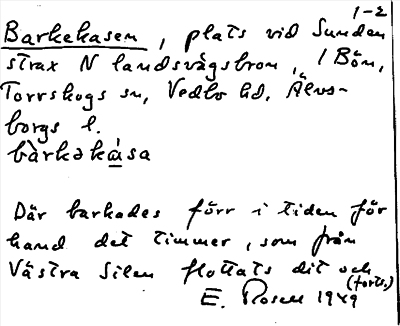 1-2
Barkekasen, plats vid Sundan
strax N landsvägsbron, / Bön,
Torrskogs sn, Vedbo hd, Älvs-
borgs l.
bàrkəká̱sa
Där barkades förr i tiden för
hand det timmer, som från
Västra Silen flottats dit och
(forts.)
E. Rosell 1949